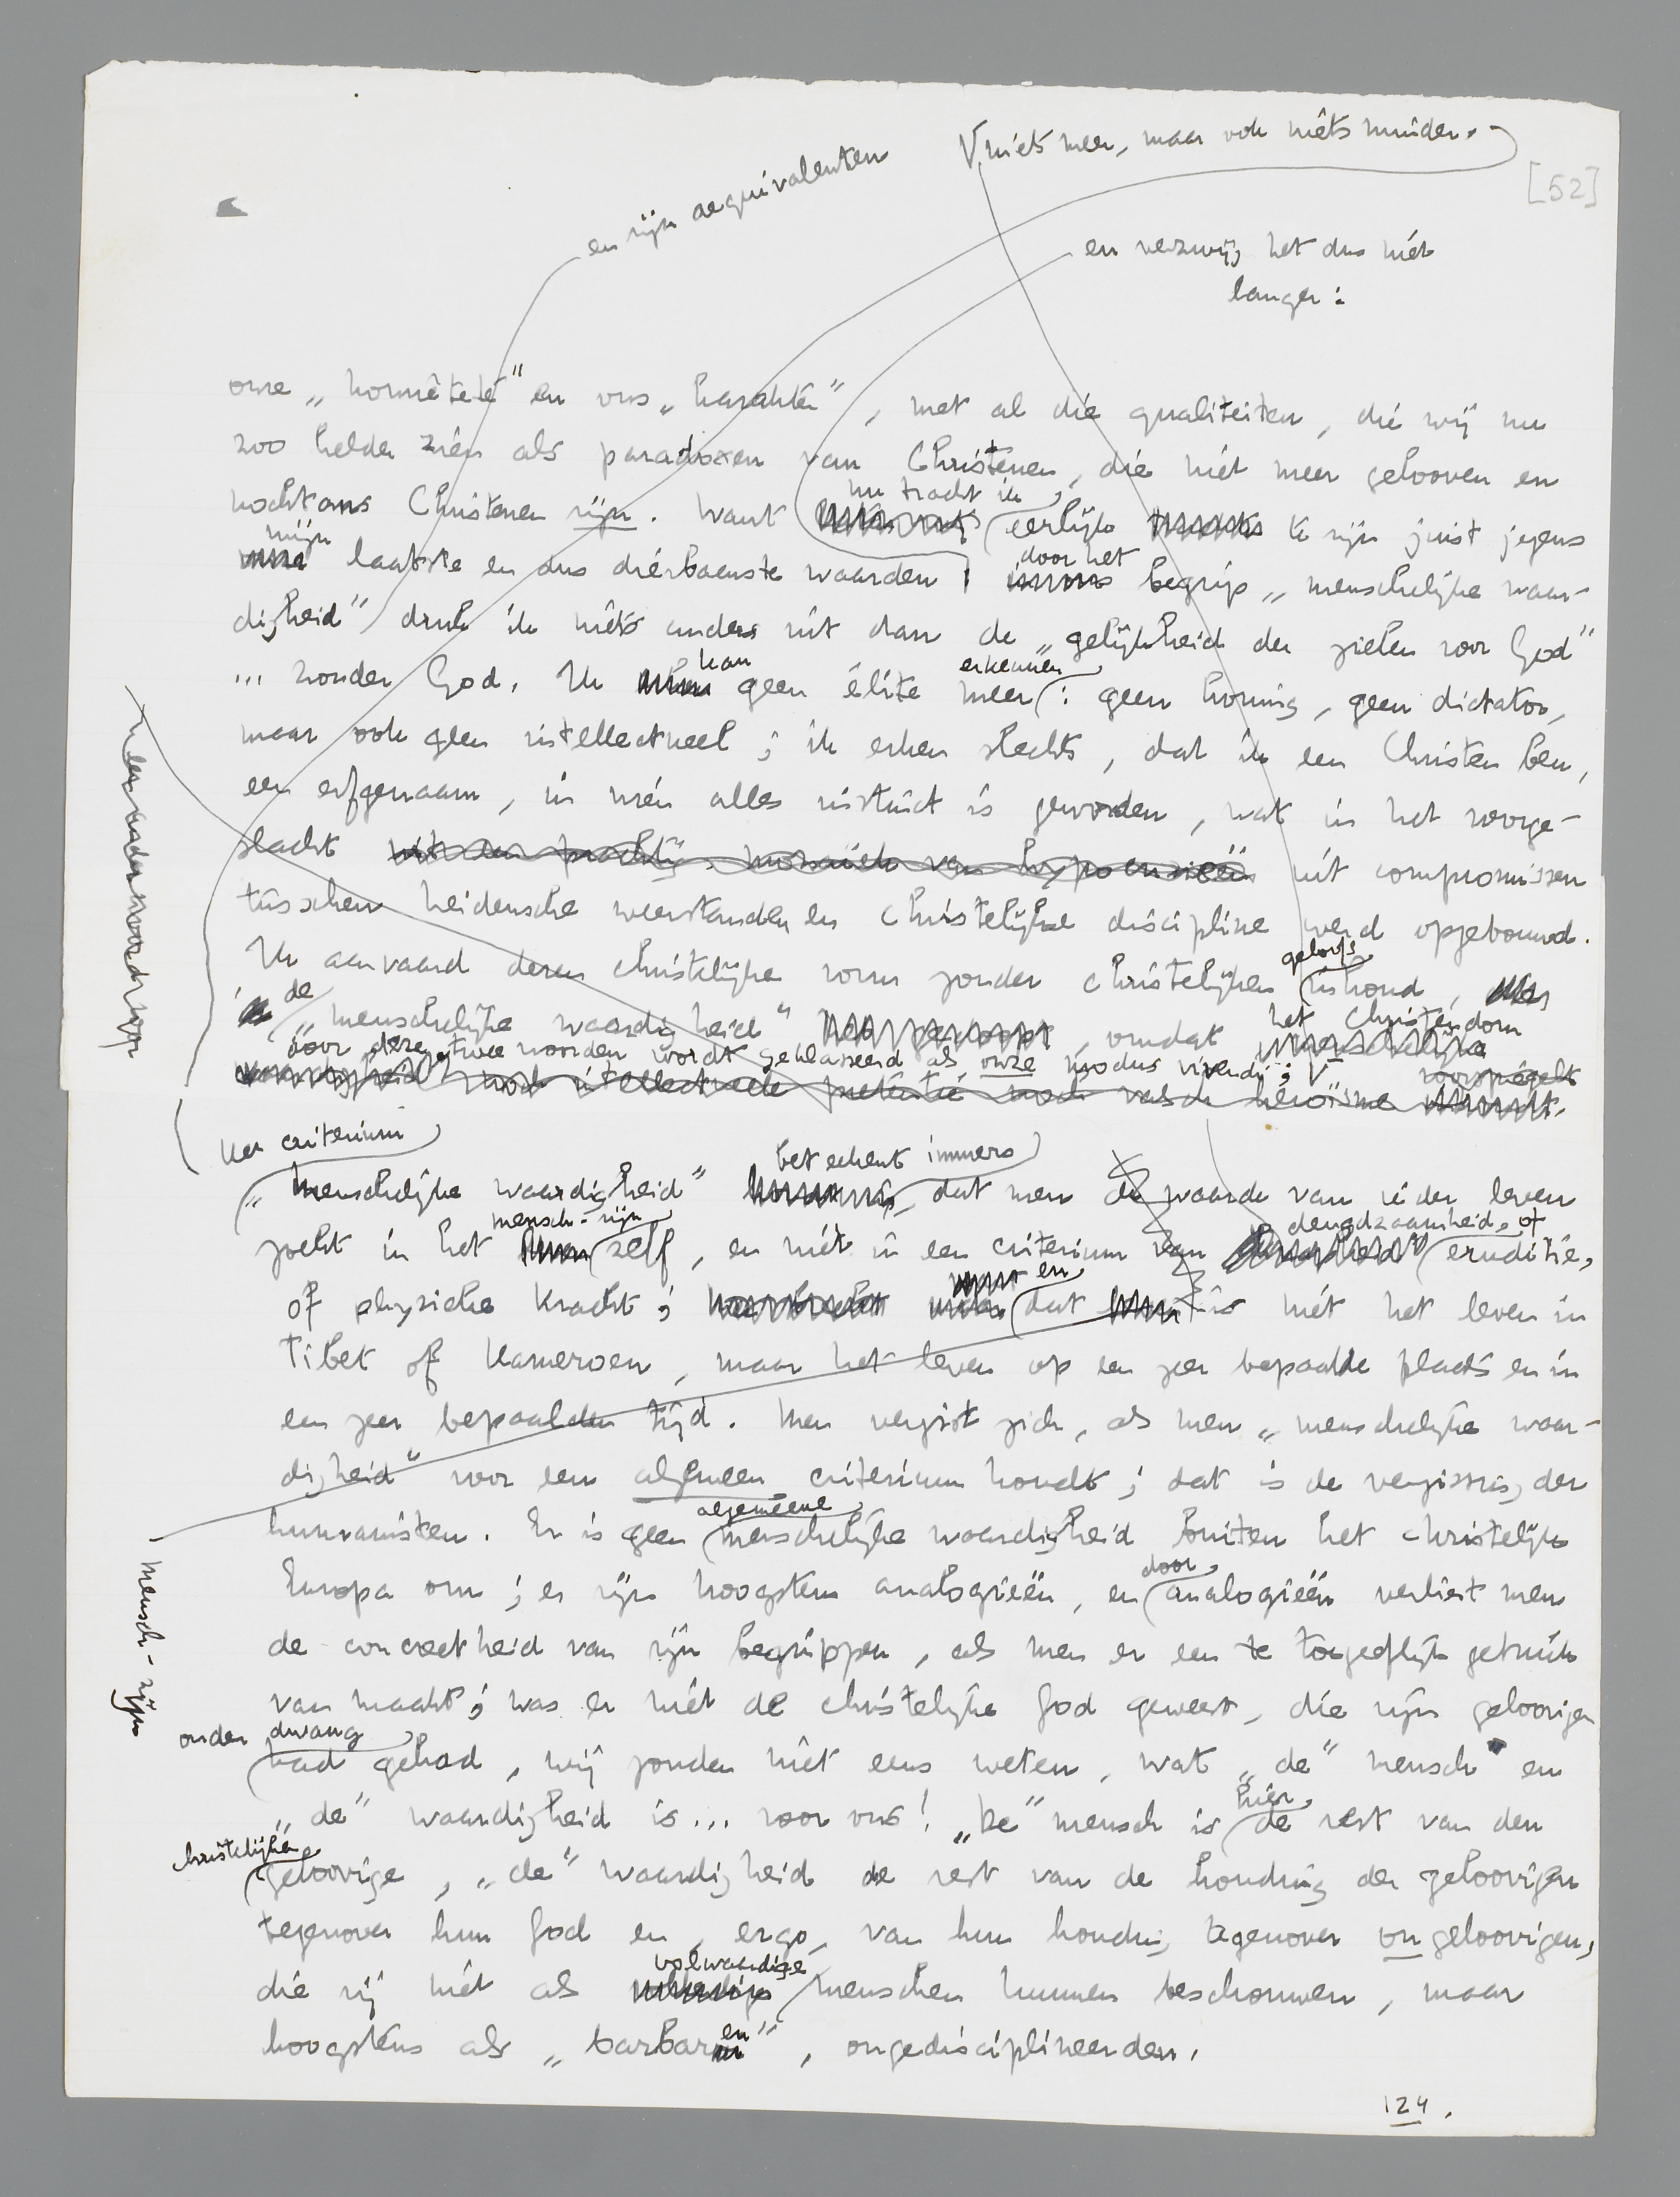 en zijn aequivalenten
V niets meer, maar ook niets minder.
[52]
en verzwijg het dus niet
langer:
onze „honnêteté” en ons „karakter”, met al die qualiteiten, die wij nu
zoo helder zien als paradoxen van Christenen, die niet meer gelooven en
nu tracht ik
nochtans Christenen zijn. Want eerlijk te zijn juist jegens
mijn door het
laatste en dus dierbaarste waarden; begrip „menschelijke waar-
digheid” druk ik niets anders uit dan de „gelijkheid der zielen voor God”
kan erkennen
... zonder God. Ik geen élite meer: geen koning, geen dictator,
maar ook geen intellectueel; ik erken slechts, dat ik een Christen ben,
een erfgenaam, in wien alles instinct is geworden, wat in het voorge-
slacht uit een prachtig mozaïek van hypocrisieën uit compromissen
tusschen heidensche weerstanden en Christelijke discipline werd opgebouwd.
geloofs
Ik aanvaard dezen christelijken vorm zonder christelijken inhoud,
de het Christendom
„menschelijke waardigheid”, omdat
door deze twee woorden wordt geklasseerd als onze modus vivendi; V voorspiegelt
waardigheid” noch intellectueele pretentie noch valsch heroïsme
Het criterium beteekent immers
„menschelijke waardigheid” dat men de waarde van ieder leven
mensch-zijn deugdzaamheid, of
zoekt in het zelf, en niet in een criterium van eruditie,
en
of physieke kracht; dat is niet het leven in
Tibet of Kameroen, maar het leven op een zeer bepaalde plaats en in
een zeer bepaalden tijd. Men vergist zich, als men „menschelijke waar-
digheid” voor een algemeen criterium houdt; dat is de vergissing der
algemeene
humanisten. Er is geen menschelijke waardigheid buiten het christelijk
door
Europa om; er zijn hoogstens analogieën, en analogieën verliest men
de concreetheid van zijn begrippen, als men er een te toegeeflijk gebruik
van maakt; was er niet de christelijke God geweest, die zijn geloovigen
onder dwang
had gehad, wij zouden niet eens weten, wat „de” mensch en
hier
„de” waardigheid is... voor ons! „De” mensch is de rest van den
christelijke
geloovige, „de” waardigheid de rest van de houding der geloovigen
tegenover hun God en, ergo, van hun houding tegenover ongeloovigen,
volwaardige
die zij niet als menschen kunnen beschouwen, maar
en
hoogstens als „barbaren”, ongedisciplineerden.
mensch-zijn
124.